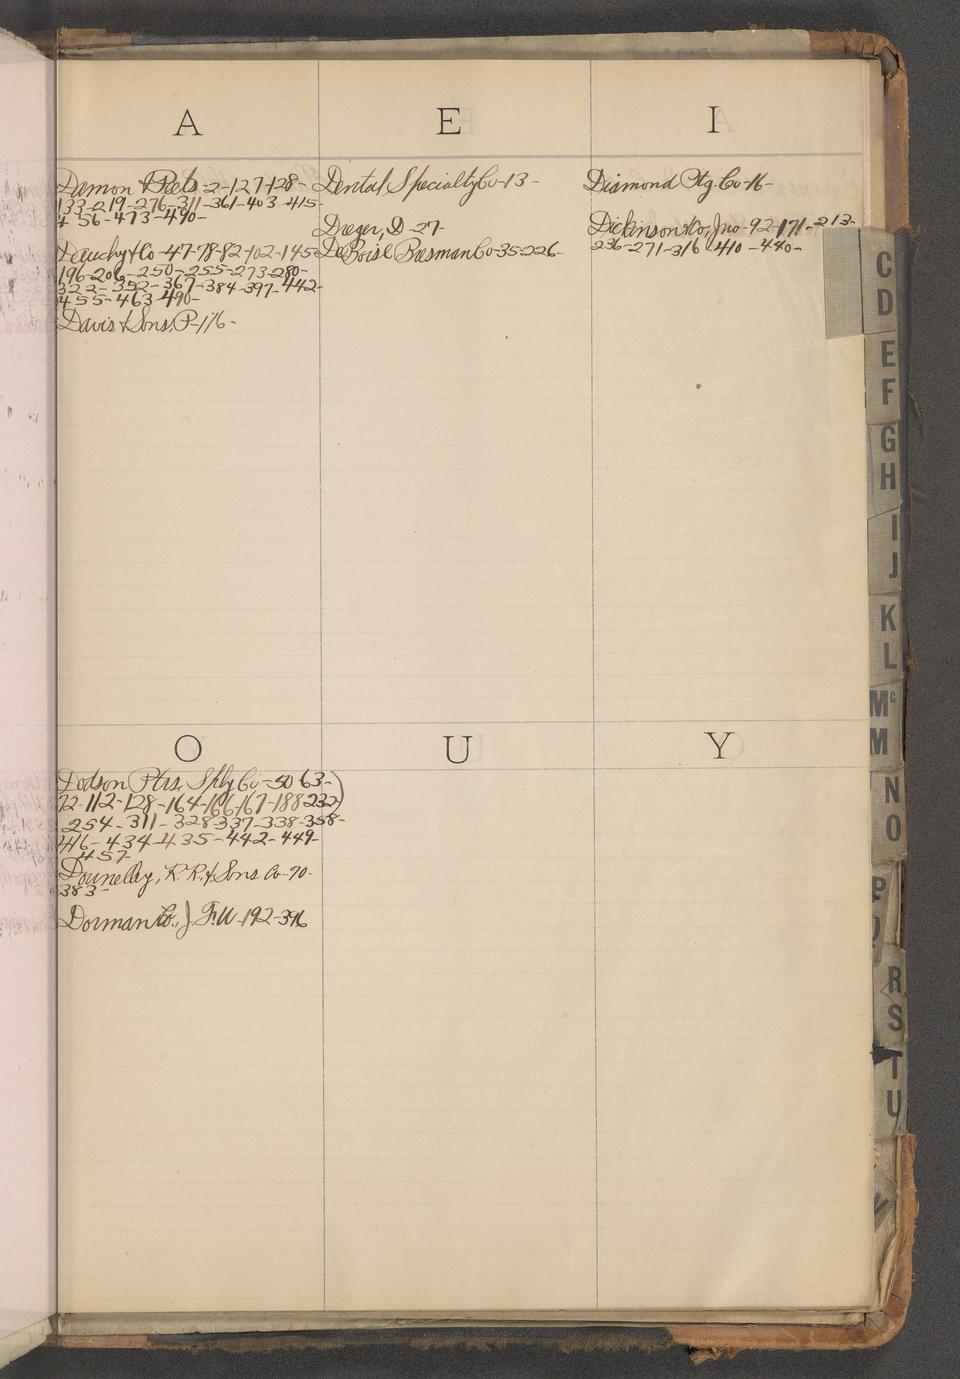 A
Damon & Peets-2-127-128-
133-219-276-311-361-403-415-
456-473-490-
Dauchy & Co-47-78-82-102-145-
196-206-250-255-273-280-
322-352-367-384-397-442-
455-463-490-
Davis & Sons, P-176-
E
Dental Specialty Co-13-
Dreger, D-27-
DeBoise Presman Co-35-226-
I
Diamond Ptg. Co-16-
Dickinson & Co, Jno-92-171-213-
236-271-316-410-440-
O
Dodson Ptrs. Sply Co-50 63-
72-112-128-164-166-167-188 232
254-311-328-337-338-358-
416-434-435-442-449-
457-
Donnelley, R.R. & Sons Co-70-
383-
Dorman Co., J.F.W-192-396
U
Y
C
D
E
F
G
H
I
J
K
L
Mc
M
N
O
P
R
S
T
U